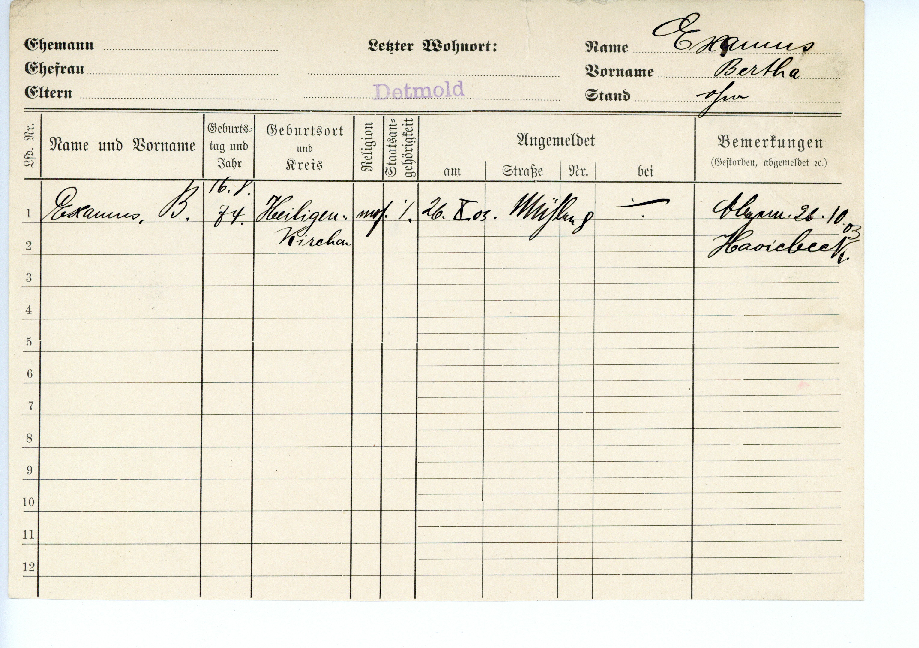 Ehemann
Ehefrau
Eltern
Letzter Wohnort:
Detmold
Name Examus
Vorname Bertha
Stand ohne
Lfd. Nr.
Name und Vorname
Geburts-
tag und
Jahr
Geburtsort
und
Kreis
Religion
Staatsan-
gehörigkeit
Angemeldet
am
Straße
Nr.
bei
Bemerkungen
(Gestorben, abgemeldet ec.)
16.8.
1 Examus, B. 74. Heiligen- mos. 26. X. 03. 26.10.03
2 Kirchen Havixbeck
3
4
5
6
7
8
9
10
11
12